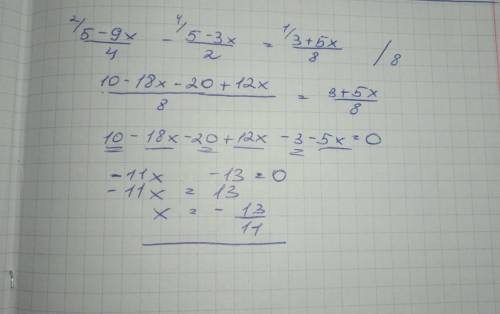 ²/ (5 - 9x)/4 - ⁴/ (5 - 3x)/2 = ¹/ (3 + 5x)/8 / 8
(10 - 18x - 20 + 12x)/8 = (3 + 5x)/8
10 - 18x - 20 + 12x - 3 - 5x = 0
-11x -13 = 0
-11x = 13
x = - 13/11